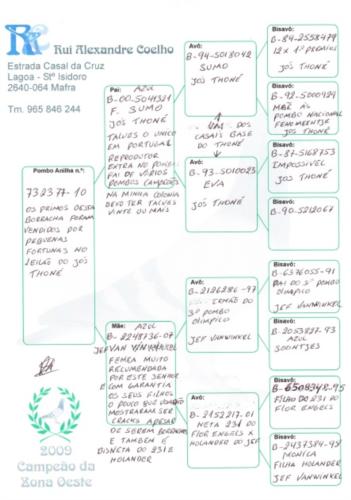 Rui Alexandre Coelho
Estrada Casal da Cruz
Lagoa - Stº Isidoro
2640-064 Mafra
Tm. 965 846 244
Pombo Anilha n.º:
732377-10
OS PRIMOS DESSA
BORRACHA FORAM
VENDIDOS POR
PEQUENAS
FORTUNAS NO
LEILÃO DO JOS
THONÉ
Pai: AZUL
B-00-5041321
F. SUMO
JOS THONÉ
TALVES O UNICO
EM PORTUGAL
REPRODUTOR
EXTRA NO POMBAL
PAI DE VÁRIOS
POMBOS CAMPEÕES
NA MINHA COLONIA
DEVO TER TALVES
VINTE OU MAIS
Mãe: AZUL
B-2248736-07
JEF VAN WINKEL
FEMEA MUITO
RECUMENDADA
POR ESTE SENHOR
E COM GARANTIA
OS SEUS FILHOS
O POUCO QUE
MOSTRARAM SER
CRACKS APESAR
DE SEREM BORRACHOS
E TAMBEM É
BISNETA DO 231 E
HOLANDER
Avô:
B-94-5018042
SUMO
JOS THONÉ
UM DOS
CASAIS BASE
DO THONÉ
Avó:
B-93-5010023
EVA
JOS THONÉ
Avô:
B-2186286-97
IRMÃO DO
3º POMBO
OLIMPICO
JEF VANWINKEL
Avó:
B-2152217-01
NETA 231 DO
FLOR ENGELS X
HOLANDER DO JEF
VANWINKEL
Bisavô:
B-84-2558479
12 X 1º PREMIOS
JOS THONÉ
Bisavó:
B-92-5000924
MÃE ÀS
POMBO NACIONAL
JOS THONÉ
Bisavô:
B-87-5168753
IMPOSSIVEL
JOS THONÉ
Bisavó:
B-90-5212067
Bisavô:
B-6376055-91
PAI DO 3º POMBO
OLIMPICO
JEF VANWINKEL
Bisavó:
B-2053827-93
AZUL
SOONTJES
Bisavô:
B-6508348-95
FILHO DO 231 DO
FLOR ENGELS
Bisavó:
B-2437384-98
MONICA
FILHA HOLANDER
JEF VANWINKEL
2009
Campeão da
Zona Oeste